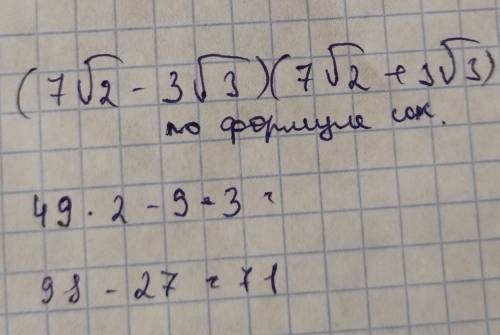 (7√2 - 3√3)(7√2 + 3√3)
по формуле сок.
49 · 2 - 9 · 3 =
98 - 27 = 71